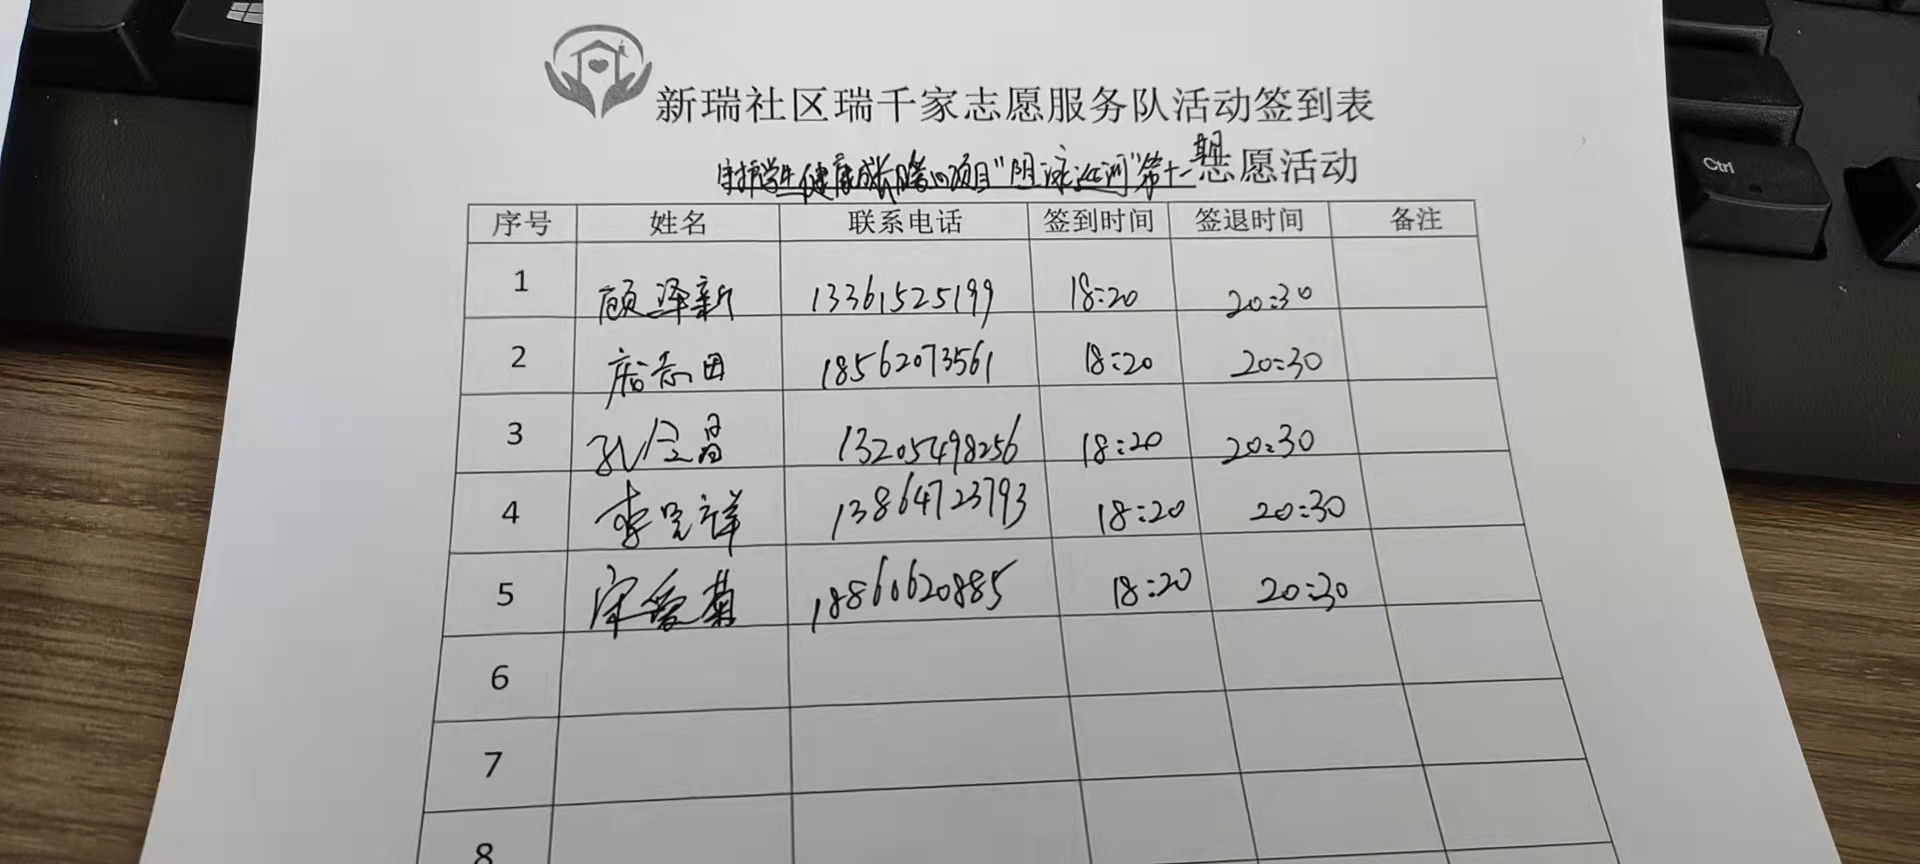 新瑞社区瑞千家志愿服务队活动签到表
守护学生健康成长暖心项目"阻泳巡河"第十一期志愿活动
序号 姓名 联系电话 签到时间 签退时间 备注
1 顾泽新 13361525199 18:20 20:30
2 18562073561 18:20 20:30
3 孔令昌 13205498256 18:20 20:30
4 李 祥 13864723793 18:20 20:30
5 宋爱菊 18860620885 18:20 20:30
6
7
8
Ctrl